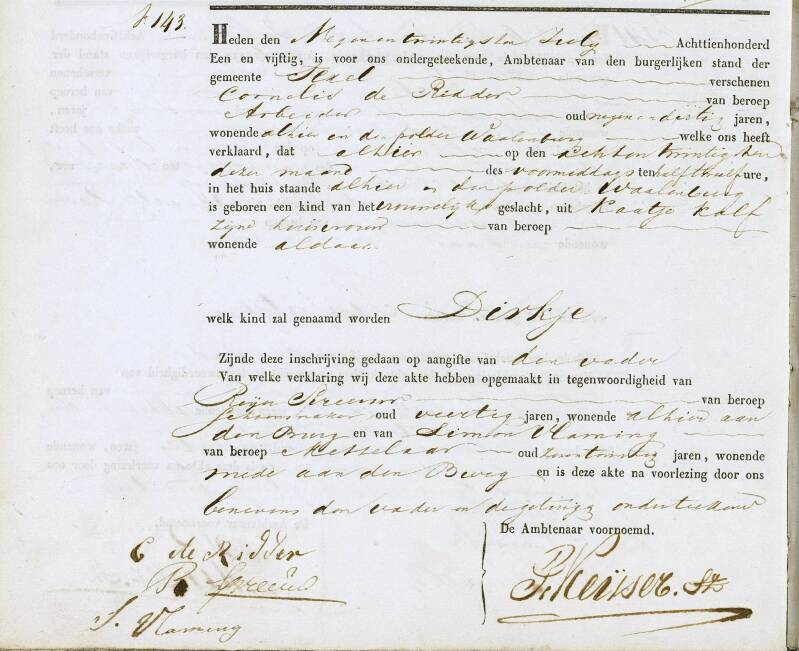 N. 143.
Heden den Negenentwintigsten July Achttienhonderd
Een en vijftig, is voor ons ondergeteekende, Ambtenaar van den burgerlijken stand der
gemeente Texel verschenen
Cornelis de Ridder van beroep
Arbeider oud negenendertig jaren,
wonende alhier in den polder Waalenburg welke ons heeft
verklaard, dat alhier op den achtentwintigsten
dezer maand des voormiddags ten half twaalf ure,
in het huis staande alhier in den polder Waalenburg
is geboren een kind van het vrouwelijke geslacht, uit Kaatje Kalf
zijne huisvrouw van beroep
wonende aldaar
welk kind zal genaamd worden Dirkje
Zijnde deze inschrijving gedaan op aangifte van den vader
Van welke verklaring wij deze akte hebben opgemaakt in tegenwoordigheid van
Reijer Spreeuw van beroep
oud veertig jaren, wonende alhier aan
den Burg en van Simon Vlaming
van beroep Metselaar oud jaren, wonende
mede aan den Burg en is deze akte na voorlezing door ons
benevens den vader en de getuigen onderteekend
De Ambtenaar voornoemd.
C de Ridder
R Spreeuw
S. Vlaming
P. Keijser. Sz